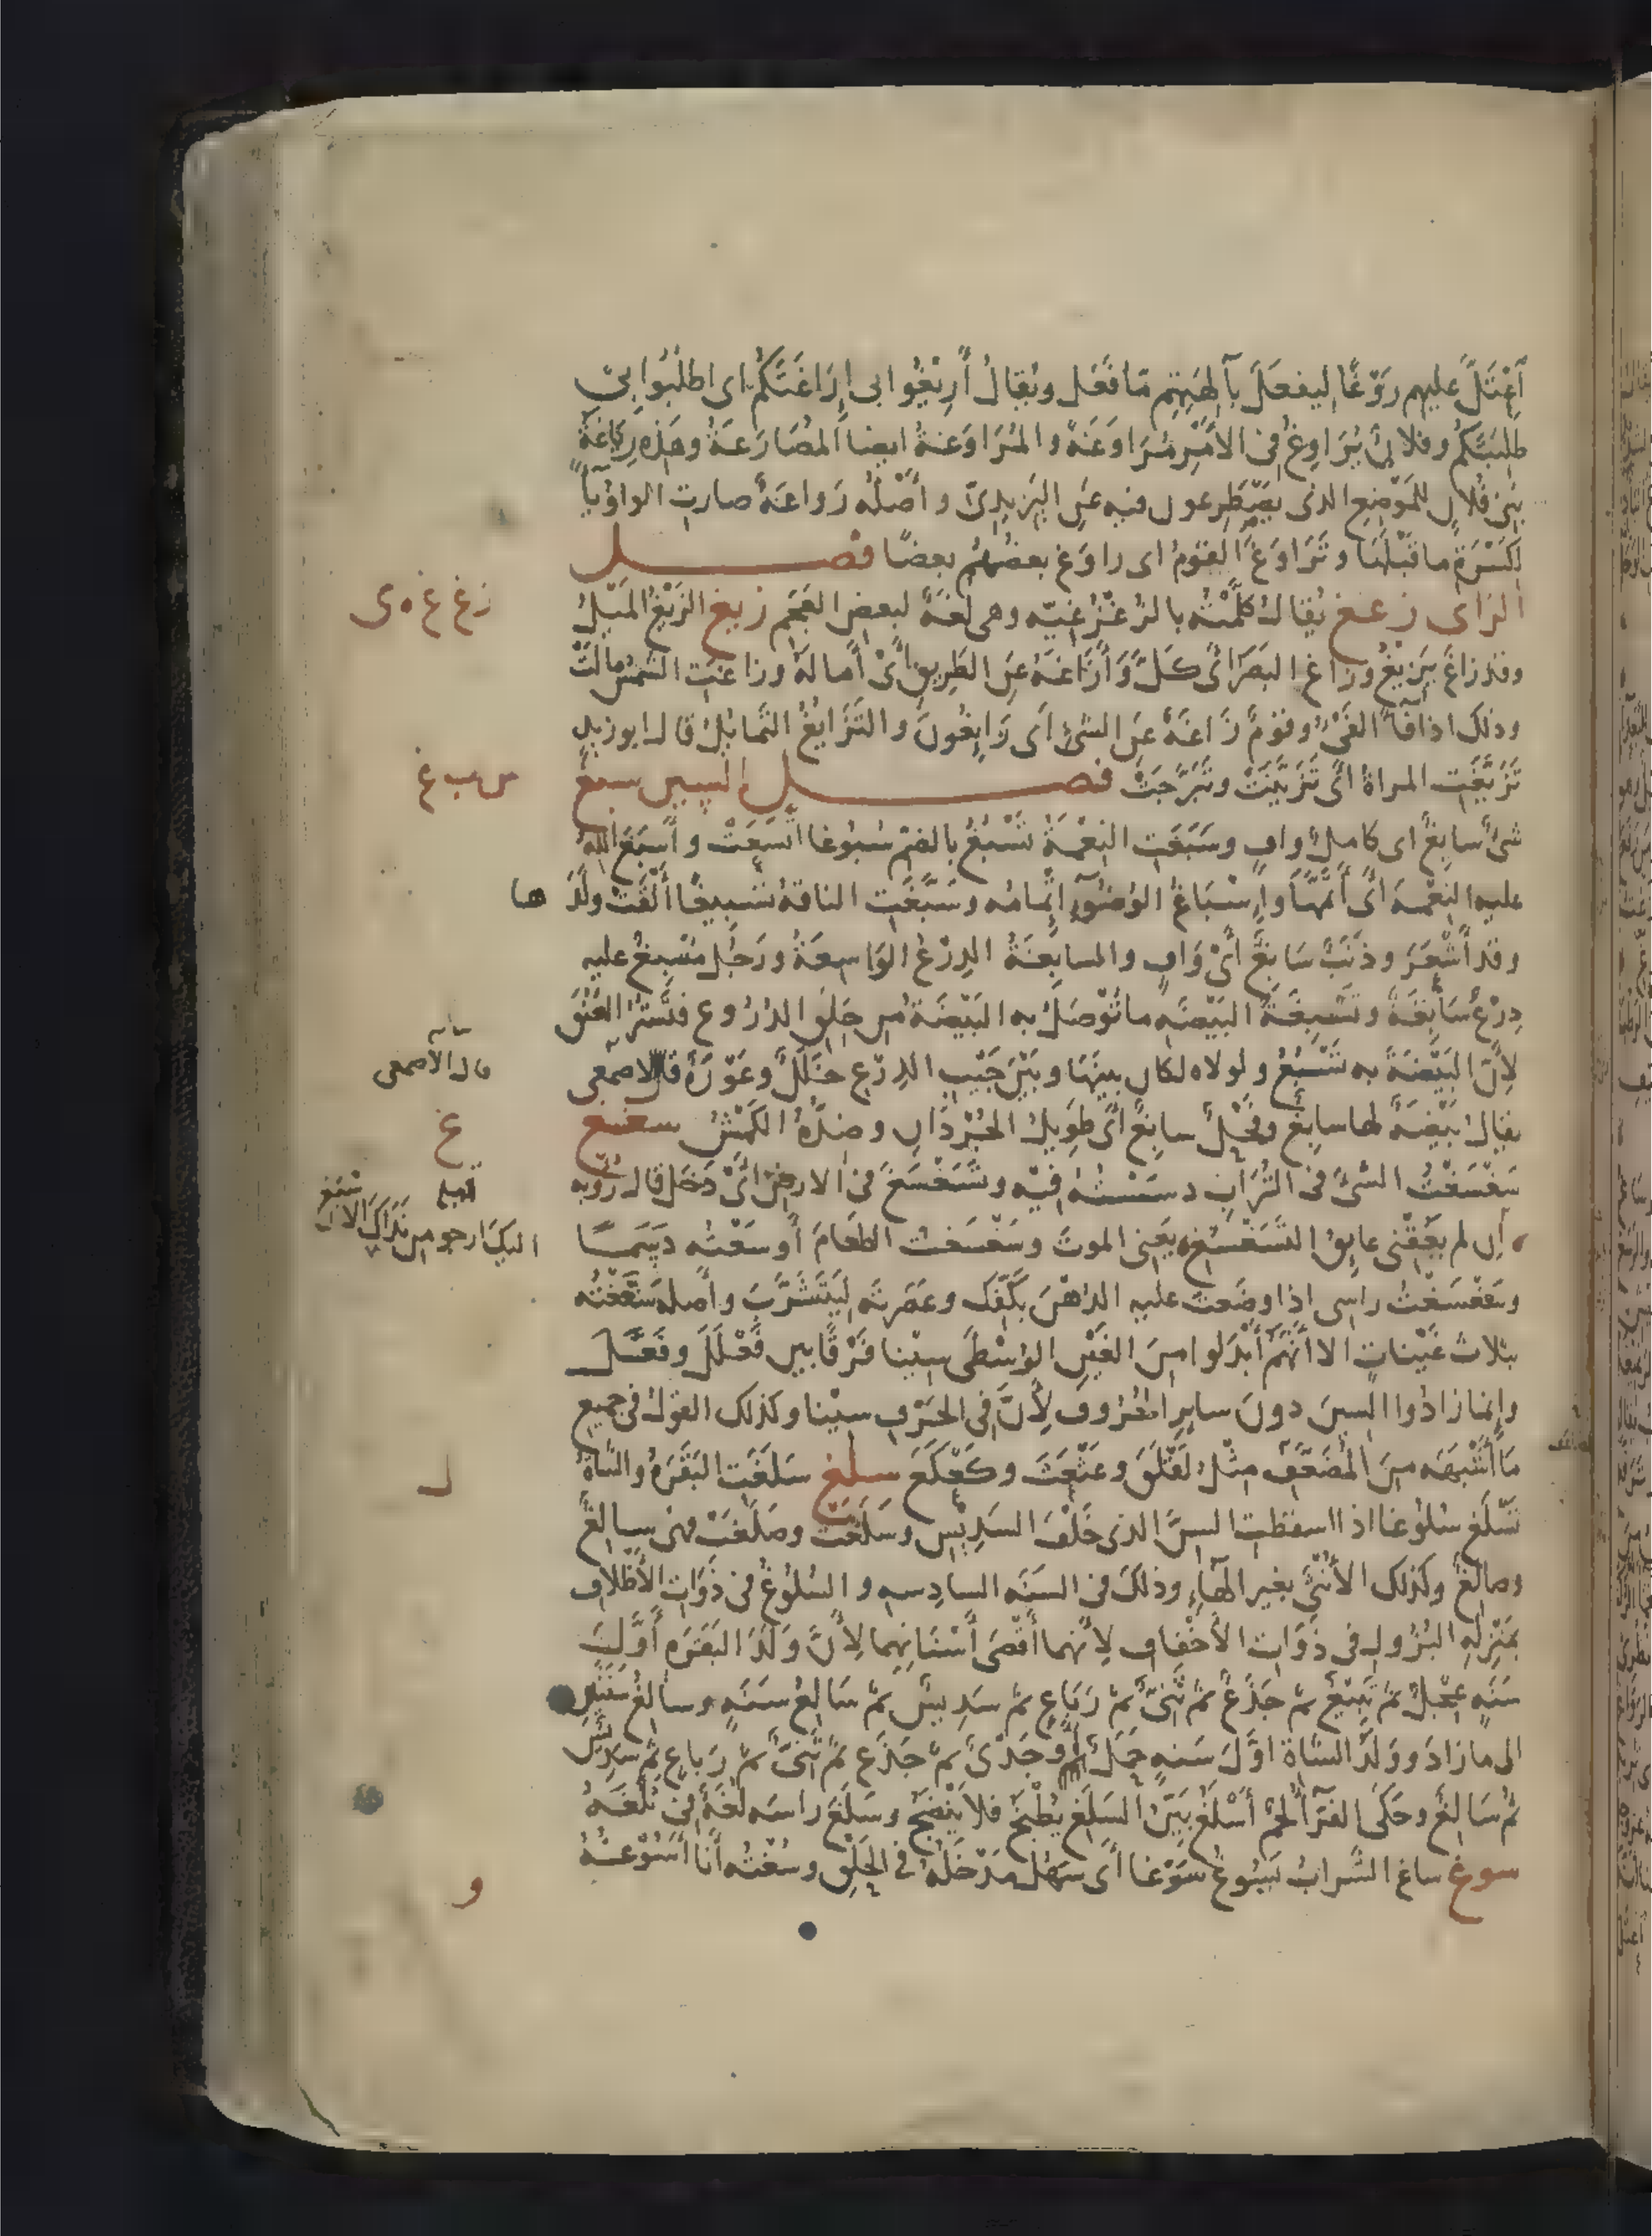 أقبل عليهم رَوْغًا ليفعل بآلهتهم ما فعل ويقال أَرِيغُوا بي إراغتكم اى اطلبوا بي
طلبتكم وفلانٌ يُرَاوِغُ فى الأمر مُرَاوَغَةً والمُرَاوَغَةُ ايضا المُصَارَعَةُ وهذه رِيَاغَةُ
بنى فلانٍ للمَوْضِع الذى يَصْطَرِعون فيه عن اليزيدىّ وأَصْلُه رِوَاغَةٌ صارت الواو ياءً
لكَسْرَةِ ما قبلها وتَرَاوَغَ القومُ اى راوَغ بعضُهُم بعضًا فصـــل
الزاى زغغ يُقالُ كلَّمْتُه بالزُّغْزُغِيَّه وهى لغةٌ لبعض العجم زيغ الزَّيْغُ المَيْلُ
وقد زاغَ يَزِيغُ وزاغ البَصَرُ اى كَلَّ وأَزَاغَهُ عن الطريق أىْ أمالهُ وزاغتِ الشمسُ مالت
وذلك اذا فاءَ الفَىْءُ وقومٌ زَاغَةٌ عن الشىء اى زَايِغُونَ والتَّزَايُغُ التَّمايُلُ قال ابو زيدٍ
تَزَيَّغَتِ المراةُ اىْ تَزَيَّنَتْ وتَبَرَّجَتْ فصـــل السين سبغ
شىءٌ سابغٌ اى كاملٌ وافٍ وسَبَغَتِ النِّعْمَةُ تَسْبُغُ بالضم سُبُوغا اتَّسَعَتْ وأَسْبَغَ اللهُ
عليه النِّعْمَةَ اىْ أَتَمَّهَا وإِسْبَاغُ الوُضُوءِ إِتْمامُه وسَبَّغَتِ الناقةُ تَسْبيغًا أَلْقَتْ ولَدَها
وقد أَشْعَرَ وذَنَبٌ سَابِغٌ أَىْ وَافٍ والسابِغَةُ الدِّرْعُ الوَاسِعَةُ ورَجُل مُسْبِغٌ عليه
دِرْعٌ سَابِغَةٌ وتَسْبِغَةُ البَيْضَةِ ما تُوْصَلُ به البَيْضَةُ من حَلَقِ الدُّرُوعِ فتَسْتُرُ العُنُقَ
لأَنَّ البَيْضَةَ به تَسْبُغُ ولولاه لكان بينها وبَيْنَ جَيْبِ الدِّرْعِ خَلَلٌ وعَوْرَةٌ قال الاصمعى
يقالُ بَيْضَةٌ لها سابِغٌ وفَحْلٌ سابِغٌ اىْ طَوِيلُ الجُرْدَانِ وضِدُّهُ الكَمْشُ سغغ
سَغْسَغْتُ الشىءَ فى التُّرَابِ دسسْتُه فيه وتَسَغْسَغَ فى الارض اىْ دَخَل قال رُوبه
إن لم يَعُقْنى عايِقُ التَّسَغْسُغِ يعنى الموت وسَغْسَغْتُ الطعامَ أَوسَعْتُه دَسَمًا
وسَغْسَغْتُ راسى اذا وضَعتَ عليه الدُّهْنَ بكَفِّك وعَصَرتَه لِيَتَشَرَّبَ وأصله سَغَّغْتُه
بثلاث غَيْنات الا انَّهُم أَبْدَلوا من الغَيْنِ الوُسْطَى سينا فَرْقًا بين فَعْلَلَ وفَعَّلَ
وإنما زادُوا السين دونَ سايرِ الحُرُوفِ لأنَّ فى الحرفِ سينا وكذلك القولُ فى جميع
مَا أَشْبَهَه من المُضَعَّفِ مثل لَقْلَقَ وعَثْعَثَ وكَعْكَعَ سلغ سَلَغَتِ البَقَرَةُ والشاةُ
تَسْلَغ سُلُوغا اذا اسقطتِ السِّنَّ الذى خَلْفَ السَدِيْسِ وسَلَغَتْ وصَلَغَتْ فهى سالِغٌ
وصالغٌ وكذلك الأُنثى بغير الهاءِ وذلكَ فى السَنَه السادِسه والسُّلوغُ فى ذَوَاتِ الأَظْلافِ
بمَنْزِلهِ البُزُولِ فى ذَوَاتِ الأَخْفافِ لأَنّهما أَقْصَى أَسْنَانِهِما لأَنَّ وَلَدَ البَقَرَهِ أَوَّلَ
سَنَةٍ عِجْلٌ ثُمّ تَبِيْعٌ ثم جَذَعٌ ثم ثَنِىٌّ ثم رَبَاعٍ ثم سَدِيسٌ ثم سَالِغُ سَنَةٍ وسالغُ سَنَتَيْنِ
الى مازادَ وولَدُ الشاةِ اوَّلَ سَنهٍ حَمَلٌ أو جَدْىٌ ثم جَذَع ثم ثَنِىٌّ ثم رَباعٍ ثم سَدِيسٌ
ثم سَالِغٌ وحَكَى الفَرّاءُ لحْمٌ أَسْلَغُ بَيِّنُ السَّلَغِ يُطْبَخُ فلا يَنْضَجُ وسَلَغَ راسه لغةٌ فى ثَلَغَهُ
سوغ ساغ الشَّرابُ يَسُوغُ سَوْغا اى سَهُلَ مَدْخَلُهُ فى الحَلْقِ وسُغْتُه أَنا أَسُوْغُهُ
زغ غ ه ى
س ب غ
قال الأصمعى
غ
قبله
اليك ارجو من نداك الاسبغ
ل
و